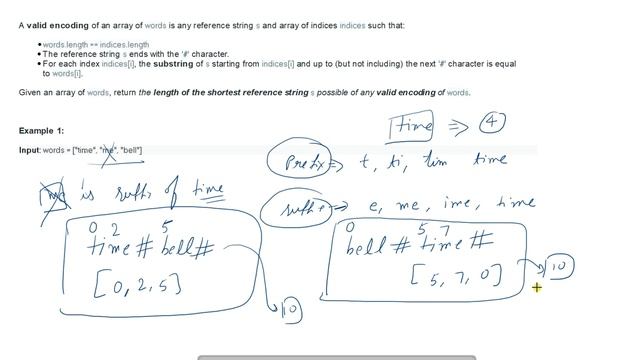 A valid encoding of an array of words is any reference string s and array of indices indices such that:
● words.length == indices.length
● The reference string s ends with the '#' character.
● For each index indices[i], the substring of s starting from indices[i] and up to (but not including) the next '#' character is equal
to words[i].
Given an array of words, return the length of the shortest reference string s possible of any valid encoding of words.
time => 4
Example 1:
Input: words = ["time", "me", "bell"]
Prefix => t, ti, tim time
me is suffix of time
suffix => e, me, ime, time
0 2 5
time # bell #
[0, 2, 5]
10
0 5 7
bell # time #
[5, 7, 0]
10